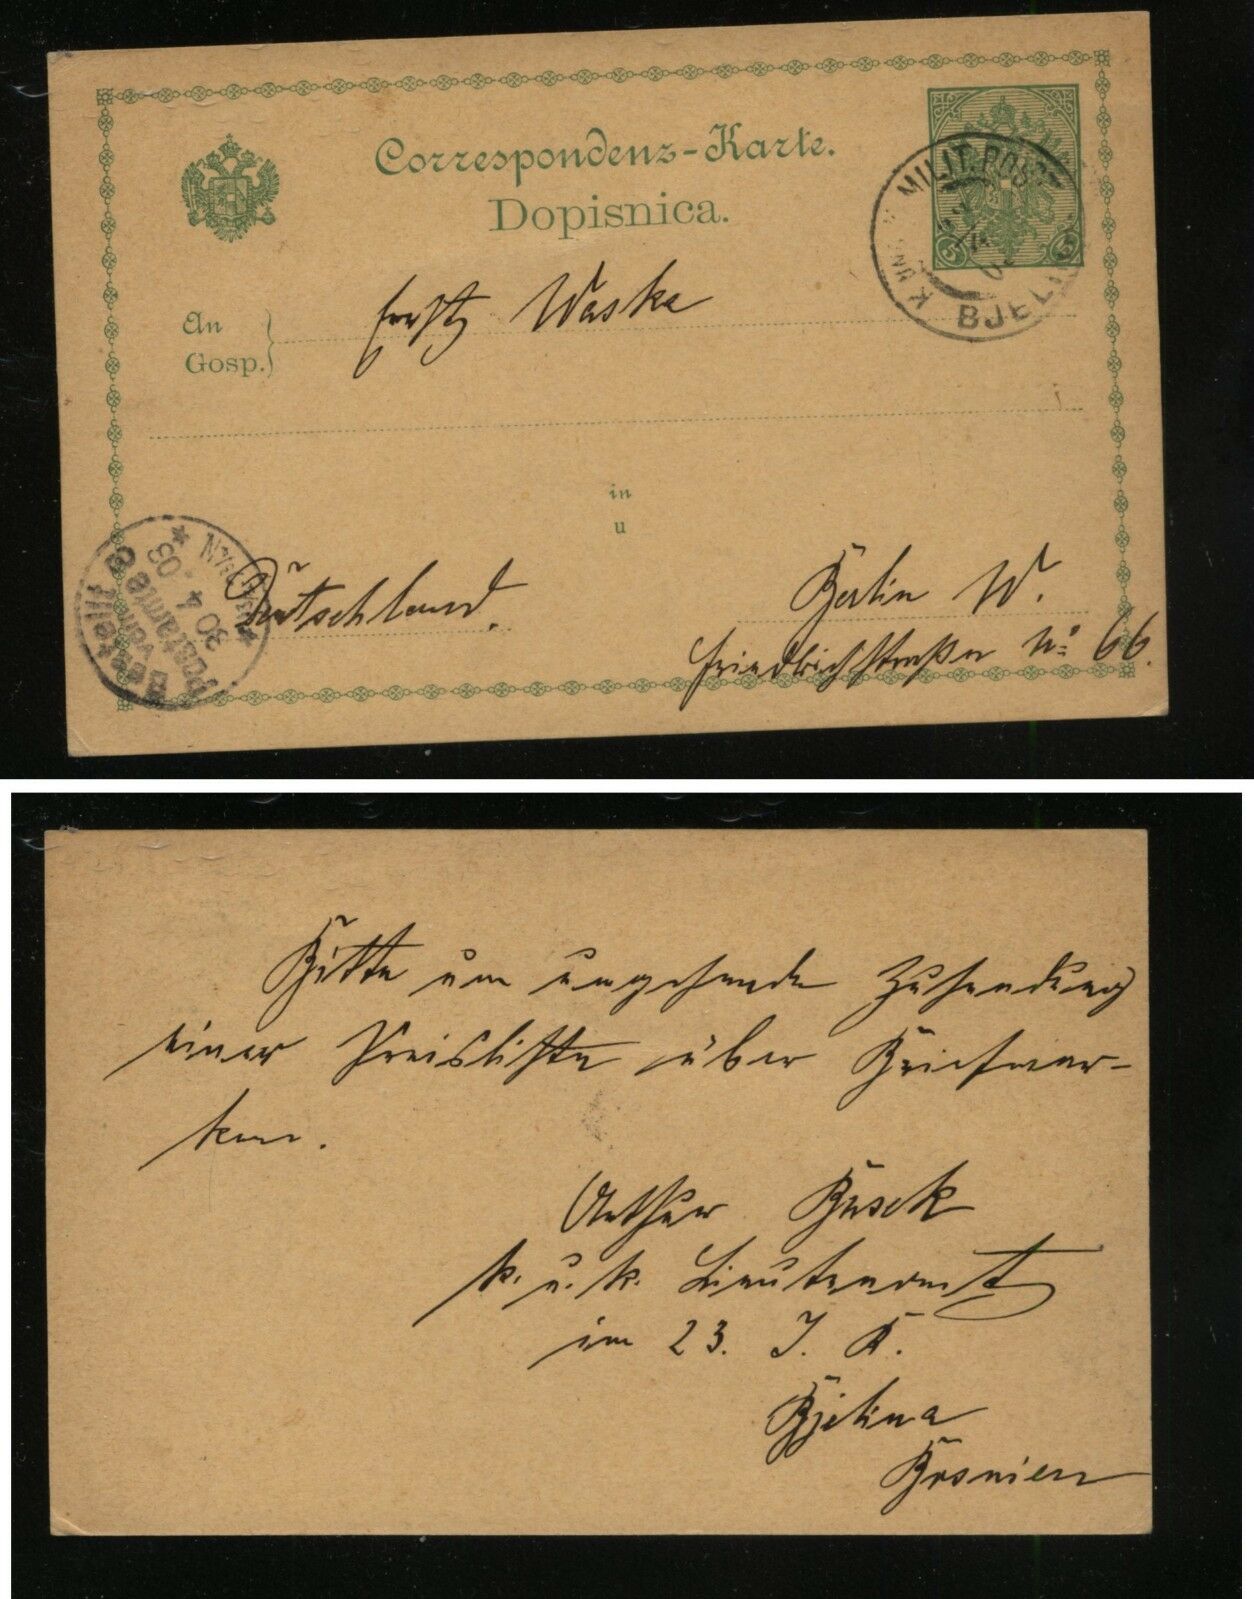 Correspondenz-Karte.
Dopisnica.
5 5
K. UND K. MILIT. POST
BJELINA
An
Gosp.
Ernst Waske
in
u
Deutschland.
Berlin W.
Friedrichstraße No 66.
Bestellt
vom
Postamte 8
30.4.03
Bitte um umgehende Zusendung
einer Preisliste über Briefmar-
ken.
Arthur Busek
k. u. k. Lieutenant
im 23. I. R.
Bjelina
Bosnien